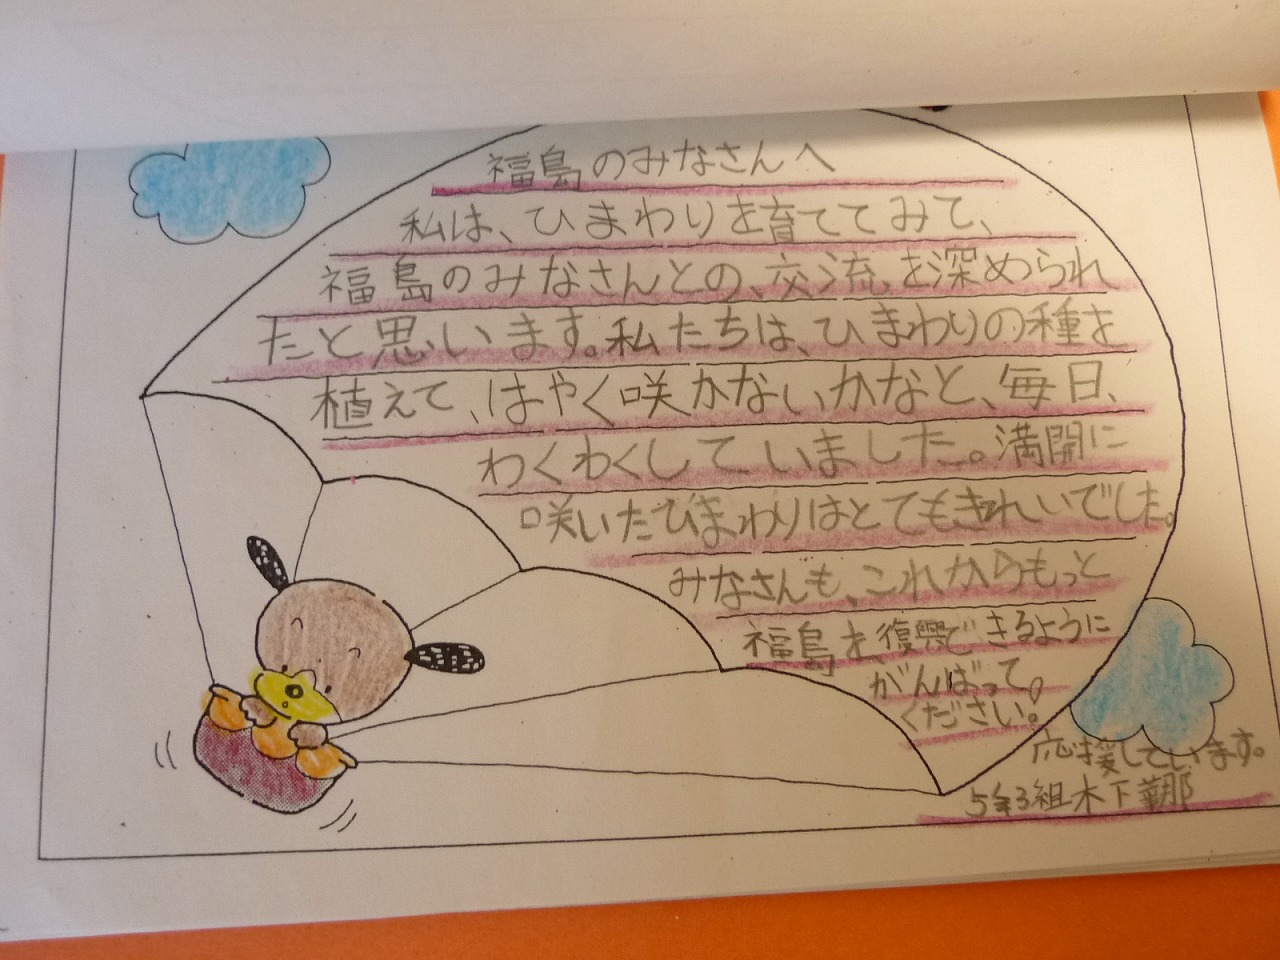 福島のみなさんへ
私は、ひまわりを育ててみて、
福島のみなさんとの、交流を深められ
たと思います。私たちは、ひまわりの種を
植えて、はやく咲かないかなと、毎日、
わくわくしていました。満開に
咲いたひまわりはとてもきれいでした。
みなさんも、これからもっと
福島を、復興できるように
がんばって
ください。
応援しています。
5年3組木下華那